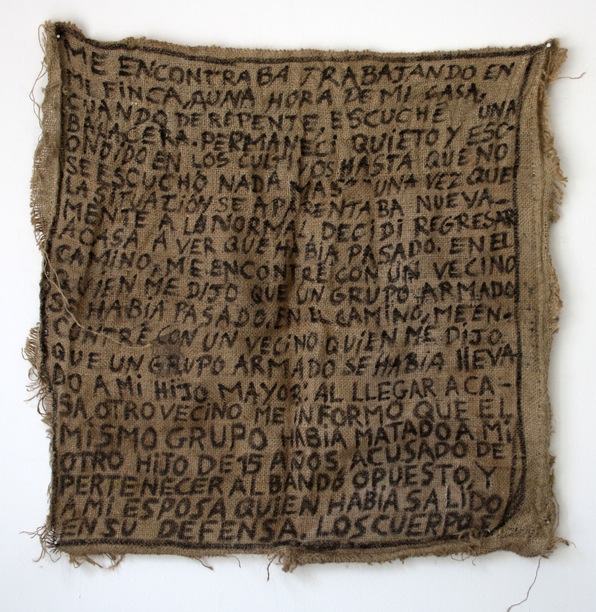 ME ENCONTRABA TRABAJANDO EN
MI FINCA, AUNA HORA DE MI CASA,
CUANDO DE REPENTE, ESCUCHE UNA
BALACERA. PERMANECI QUIETO Y ESC-
ONDIDO EN LOS CULTIVOS HASTA QUE NO
SE ESCUCHÓ NADA MAS. UNA VEZ QUE
LA SITUATIÓN SE APARENTABA NUEVA-
MENTE A LA NORMAL, DECIDI REGRESAR
A CASA A VER QUE HABIA PASADO. EN EL
CAMINO, ME ENCONTRÉ CON UN VECINO
QUIEN ME DIJO QUE UN GRUPO ARMADO
SE HABIA PASADO. EN EL CAMINO, ME EN-
CONTRÉ CON UN VECINO QUIEN ME DIJO
QUE UN GRUPO ARMADO SE HABIA llEVA-
DO A MI HIJO MAYOR. AL LLEGAR A CA-
SA, OTRO VECINO ME INFORMO QUE EL
MISMO GRUPO HABIA MATADO A MI
OTRO HIJO DE 15 AÑOS, ACUSADO DE
PERTENECER AL BANDO OPUESTO, Y
A MI ESPOSA QUIEN HABIA SALIDO
EN SU DEFENSA. LOS CUERPOS